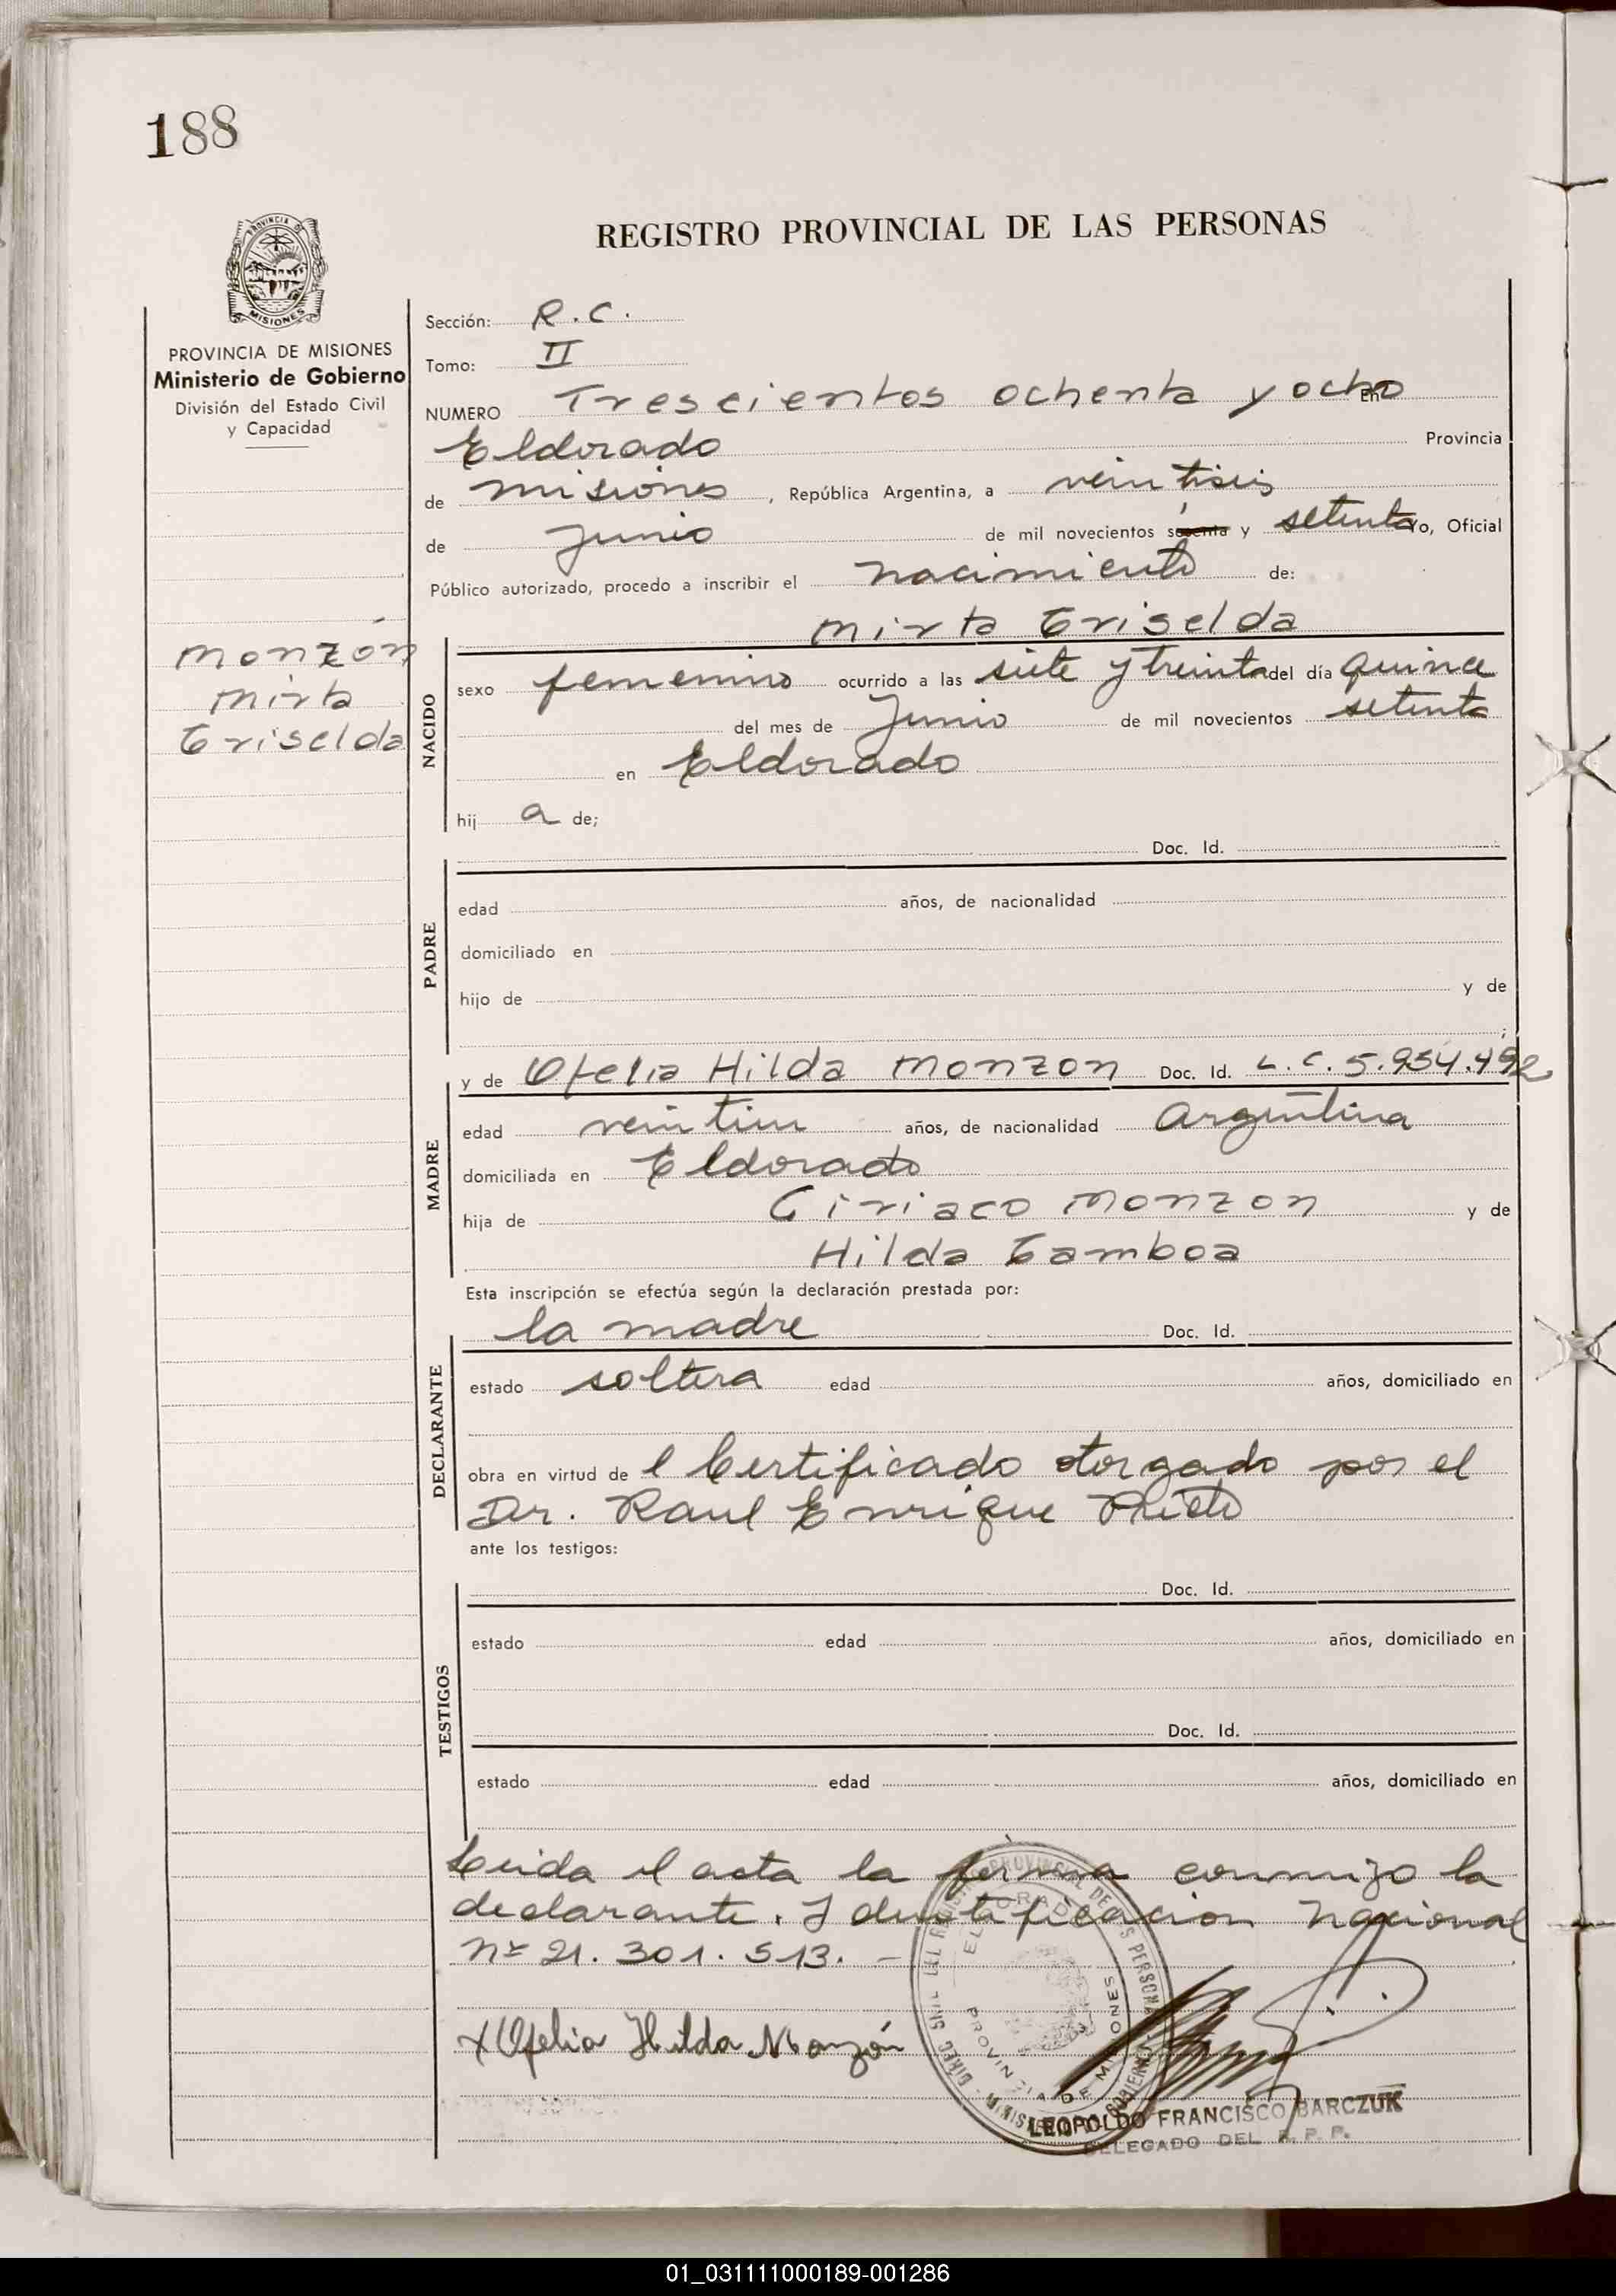 188
REGISTRO PROVINCIAL DE LAS PERSONAS
PROVINCIA DE
MISIONES
PROVINCIA DE MISIONES
Ministerio de Gobierno
División del Estado Civil
y Capacidad
Monzón
Mirta
Griselda
Sección: R.C.
Tomo: II
NUMERO Trescientos ochenta y ocho En
Eldorado Provincia
de Misiones, República Argentina, a veintiseis
de Junio de mil novecientos sesenta y setenta Yo, Oficial
Público autorizado, procedo a inscribir el nacimiento de:
Mirta Griselda
NACIDO
sexo femenino ocurrido a las siete y treinta del día quince
del mes de Junio de mil novecientos setenta
en Eldorado
hij a de;
Doc. Id.
PADRE
edad años, de nacionalidad
domiciliado en
hijo de y de
;
y de Ofelia Hilda Monzon Doc. Id. L.C. 5.954.492
MADRE
edad veintiun años, de nacionalidad Argentina
domiciliada en Eldorado
hija de Ciriaco Monzon y de
Hilda Gamboa
Esta inscripción se efectúa según la declaración prestada por:
la madre Doc. Id.
DECLARANTE
estado soltera edad años, domiciliado en
obra en virtud de l Certificado otorgado por el
Dr. Raul Enrique Prieto
ante los testigos:
Doc. Id.
TESTIGOS
estado edad años, domiciliado en
Doc. Id.
estado edad años, domiciliado en
Leida el acta la firma conmigo la
declarante. Identificacion Nacional
Nº 21.301.513.-
x Ofelia Hilda Monzón
PROVINCIA DE MISIONES
LEOPOLDO FRANCISCO BARCZUK
DELEGADO DEL R. P. P.
01_031111000189-001286